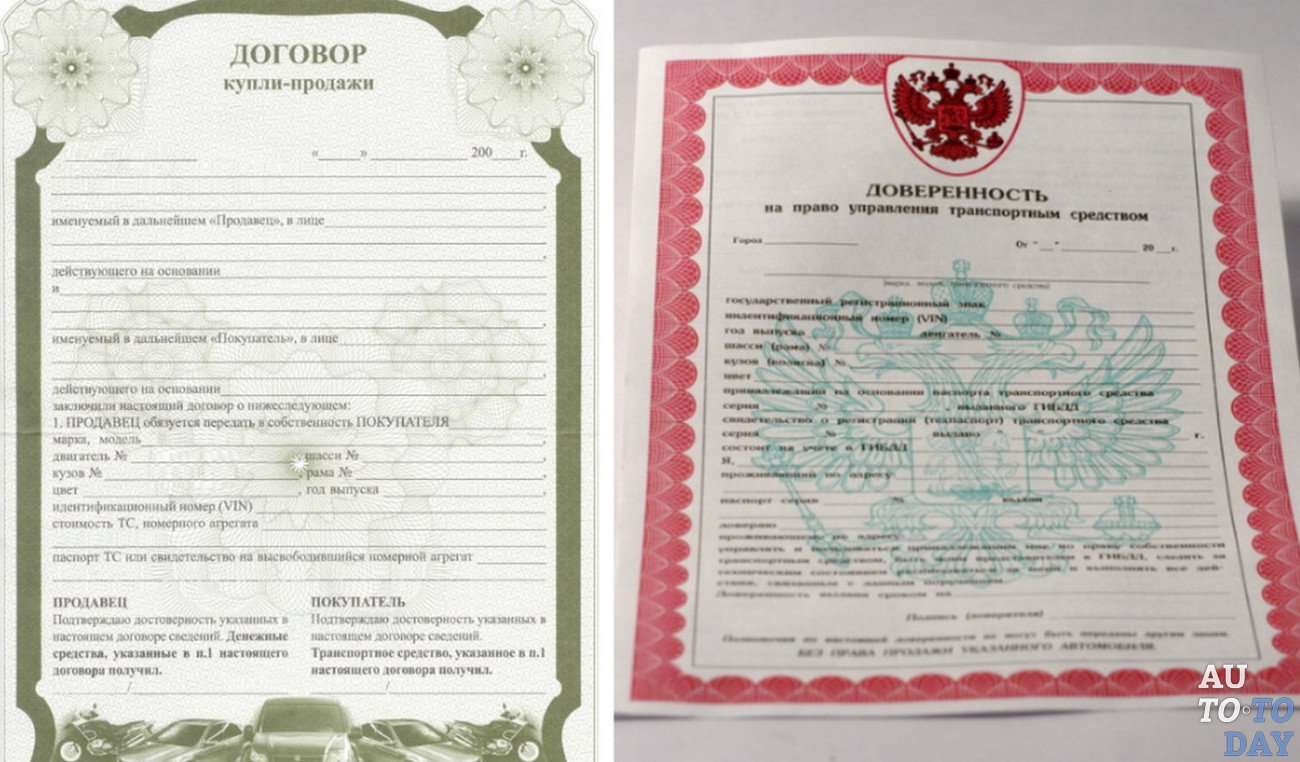 ДОГОВОР
купли-продажи
«_____» ______________ 200____г.
именуемый в дальнейшем «Продавец», в лице
действующего на основании
и
именуемый в дальнейшем «Покупатель», в лице
действующего на основании
заключили настоящий договор о нижеследующем:
1. ПРОДАВЕЦ обязуется передать в собственность ПОКУПАТЕЛЯ
марка, модель
двигатель № , шасси №
кузов № , рама №
цвет , год выпуска
идентификационный номер (VIN)
стоимость ТС, номерного агрегата
паспорт ТС или свидетельство на высвободившийся номерной агрегат
ПРОДАВЕЦ
Подтверждаю достоверность указанных в
настоящем договоре сведений. Денежные
средства, указанные в п.1 настоящего
договора получил.
/
ПОКУПАТЕЛЬ
Подтверждаю достоверность указанных в
настоящем договоре сведений.
Транспортное средство, указанное в п.1
настоящего договора получил.
/
ДОВЕРЕННОСТЬ
на право управления транспортным средством
Город
От "__"______________ 20___г.
(марка, модель транспортного средства)
государственный регистрационный знак
идентификационный номер (VIN)
год выпуска двигатель №
шасси (рама) №
кузов (коляска) №
цвет
принадлежащий на основании паспорта транспортного средства
серия № , выданного ГИБДД
свидетельство о регистрации (техпаспорт) транспортного средства
серия № выдано " " г.
состоит на учете в ГИБДД
Я,
проживающий по адресу:
паспорт серия № выдан
доверяю
проживающему по адресу:
управлять и пользоваться принадлежащим мне по праву собственности
транспортным средством, быть моим представителем в ГИБДД, следить за
техническим состоянием, расписываться за меня и выполнять все дей-
ствия, связанные с данным поручением.
Доверенность выдана сроком на
Подпись (доверителя)
Полномочия по настоящей доверенности не могут быть переданы другим лицам.
БЕЗ ПРАВА ПРОДАЖИ УКАЗАННОГО АВТОМОБИЛЯ.
AU
TO TO
DAY